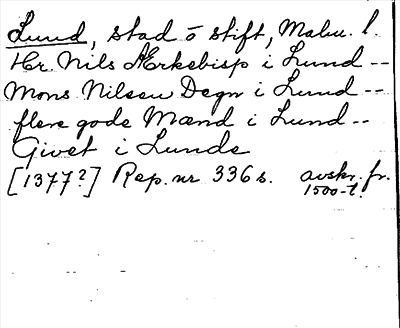 Lund, stad o stift, Malm. l.
Hr. Nils Ærkebisp i Lund --
Mons Nilsen Degn i Lund --
flere gode Mænd i Lund --
Givet i Lunde
[1377?] Rep. nr 336 s. avskr. fr.
1500-t.